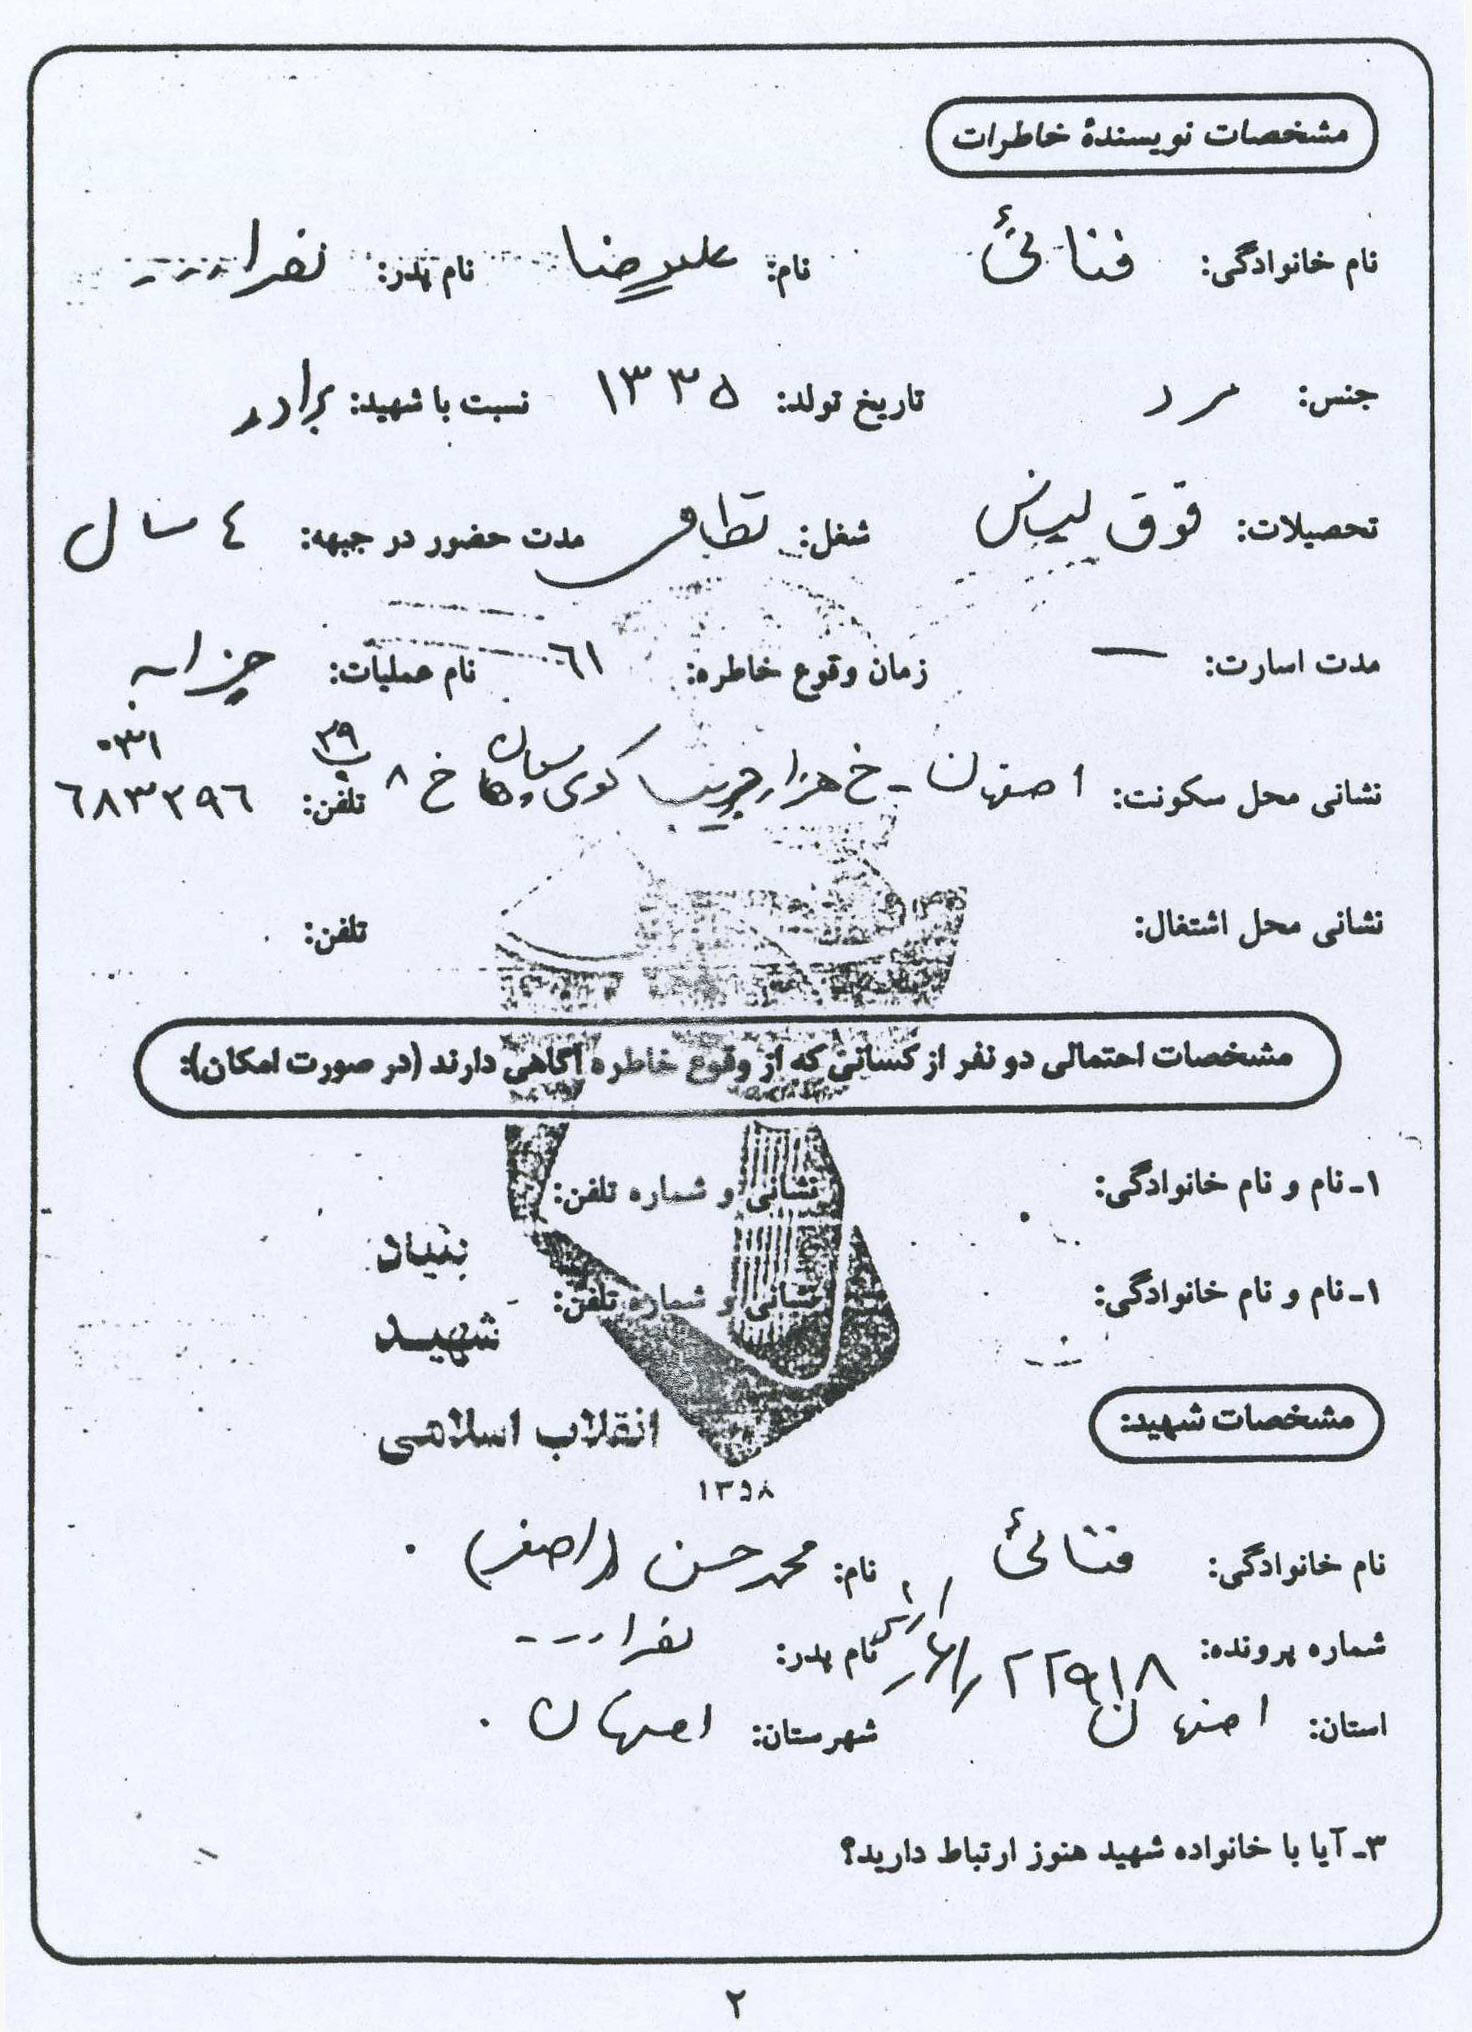 مشخصات نویسندهٔ خاطرات
نام خانوادگی: فنائی نام: علیرضا نام پدر:
جنس: مرد تاریخ تولد: ۱۳۳۵ نسبت با شهید: برادر
تحصیلات: فوق لیسانس شغل: نظامی مدت حضور در جبهه: ٤ سال
مدت اسارت: — زمان وقوع خاطره: ٦١ نام عملیات: چزابه
۰۳۱
نشانی محل سکونت: اصفهان - خ هزار جریب کوی خ ۸ ۳۹ تلفن: ٦٨٣٢٩٦
نشانی محل اشتغال: تلفن:
مشخصات احتمالی دو نفر از کسانی که از وقوع خاطره آگاهی دارند (در صورت امکان):
۱ـ نام و نام خانوادگی: نشانی و شماره تلفن:
بنیاد
۱ـ نام و نام خانوادگی: نشانی و شماره تلفن:
شهید
انقلاب اسلامی
مشخصات شهید:
۱۳۵۸
نام خانوادگی: فنائی نام: محمد حسن (اصغر)
شماره پرونده: ۲۲۹۱۸ نام پدر:
استان: اصفهان شهرستان: اصفهان
۳ـ آیا با خانواده شهید هنوز ارتباط دارید؟
۲